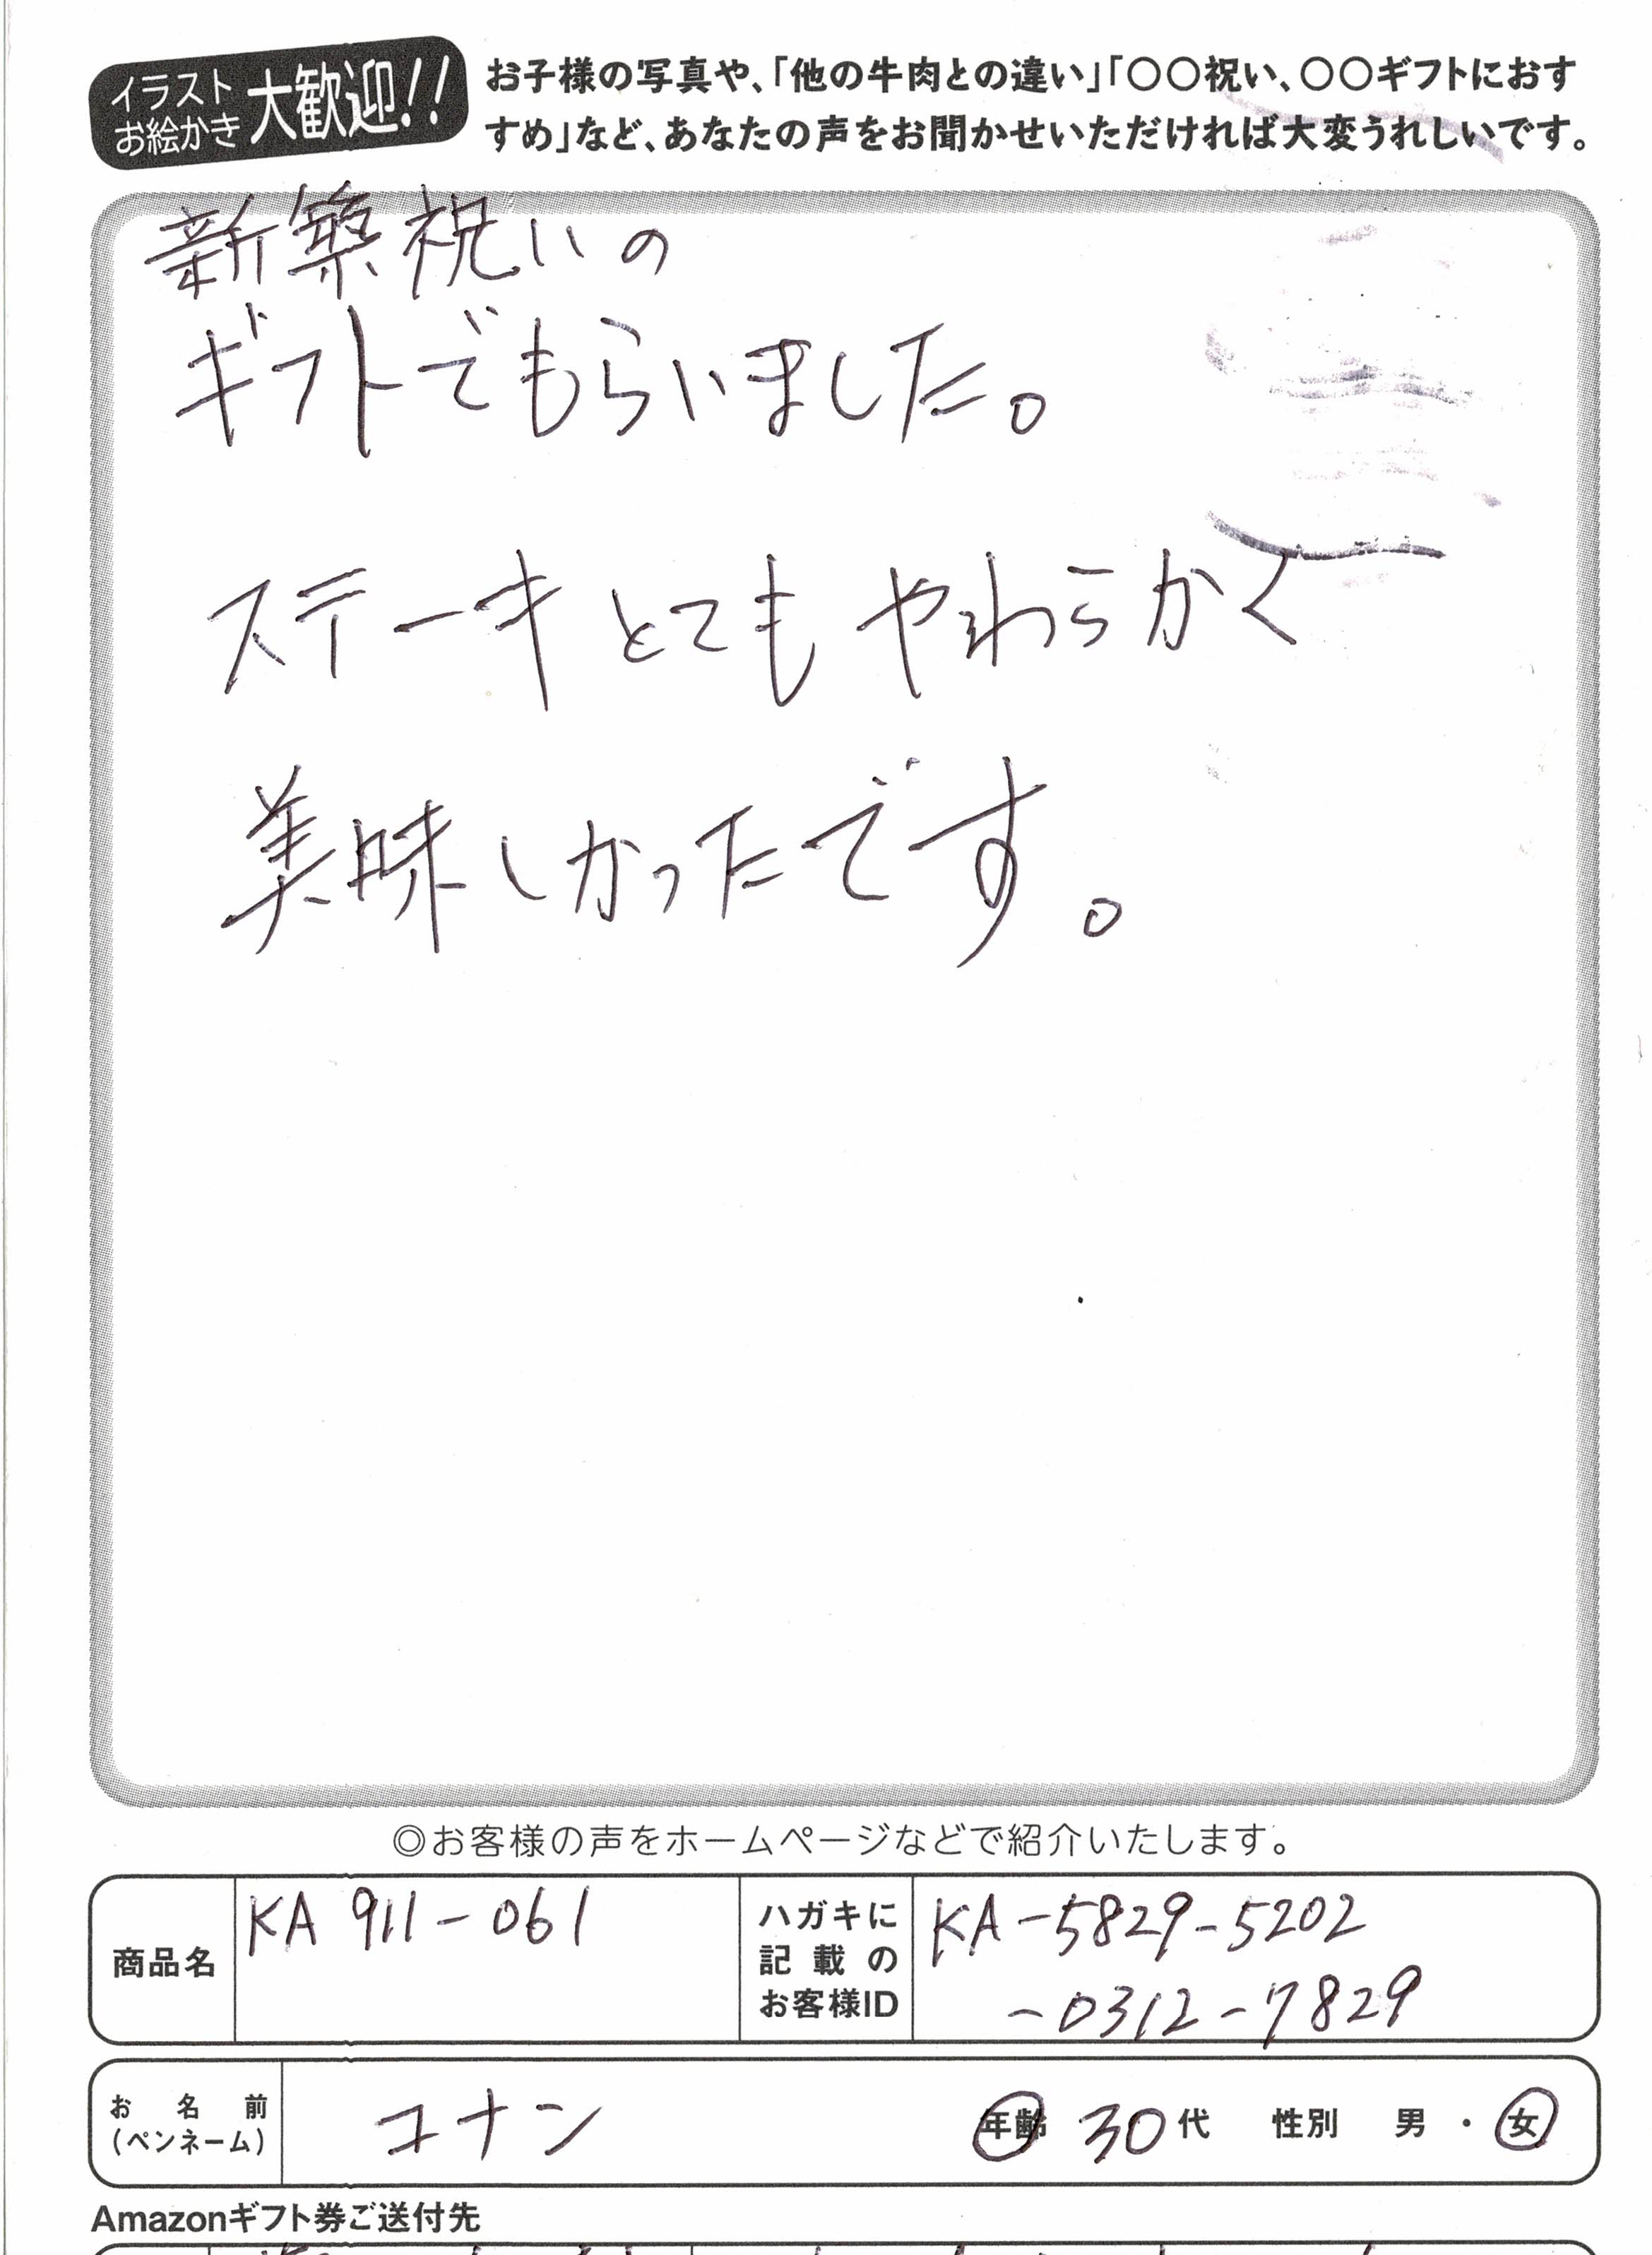 イラスト
お絵かき
大歓迎!!
お子様の写真や、「他の牛肉との違い」「〇〇祝い、〇〇ギフトにおす
すめ」など、あなたの声をお聞かせいただければ大変うれしいです。
新築祝いの
ギフトでもらいました。
ステーキとてもやわらかく
美味しかったです。
◎お客様の声をホームページなどで紹介いたします。
商品名
KA 911-061
ハガキに
記載の
お客様ID
KA-5829-5202
-0312-7829
お名前
(ペンネーム)
コナン
年齢 30代 性別 男・女
Amazonギフト券ご送付先